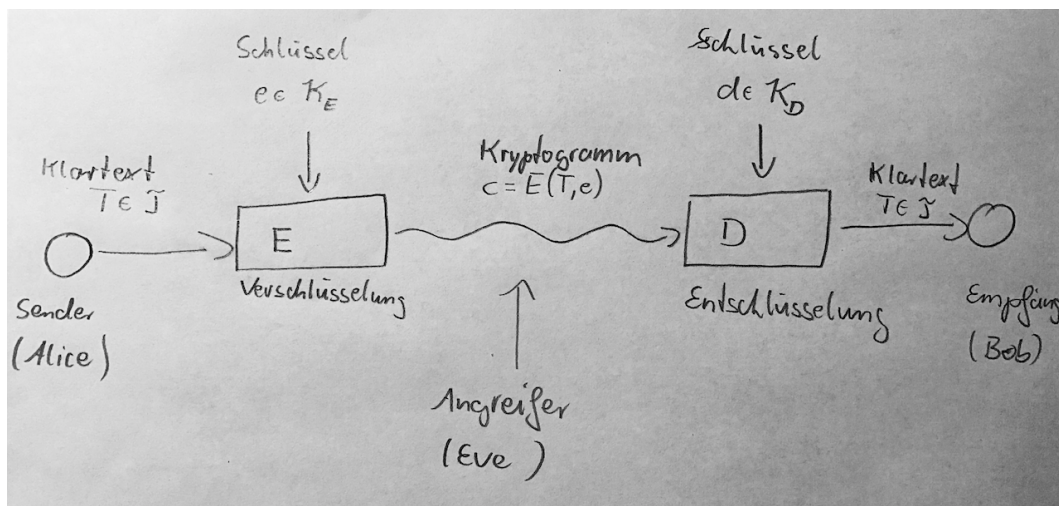 Schlüssel
e ∈ K_E
Schlüssel
d ∈ K_D
Klartext
T ∈ 𝒯
Kryptogramm
c = E(T,e)
Klartext
T ∈ 𝒯
E
D
Verschlüsselung
Entschlüsselung
Sender
(Alice)
Empfäng
(Bob)
Angreifer
(Eve)